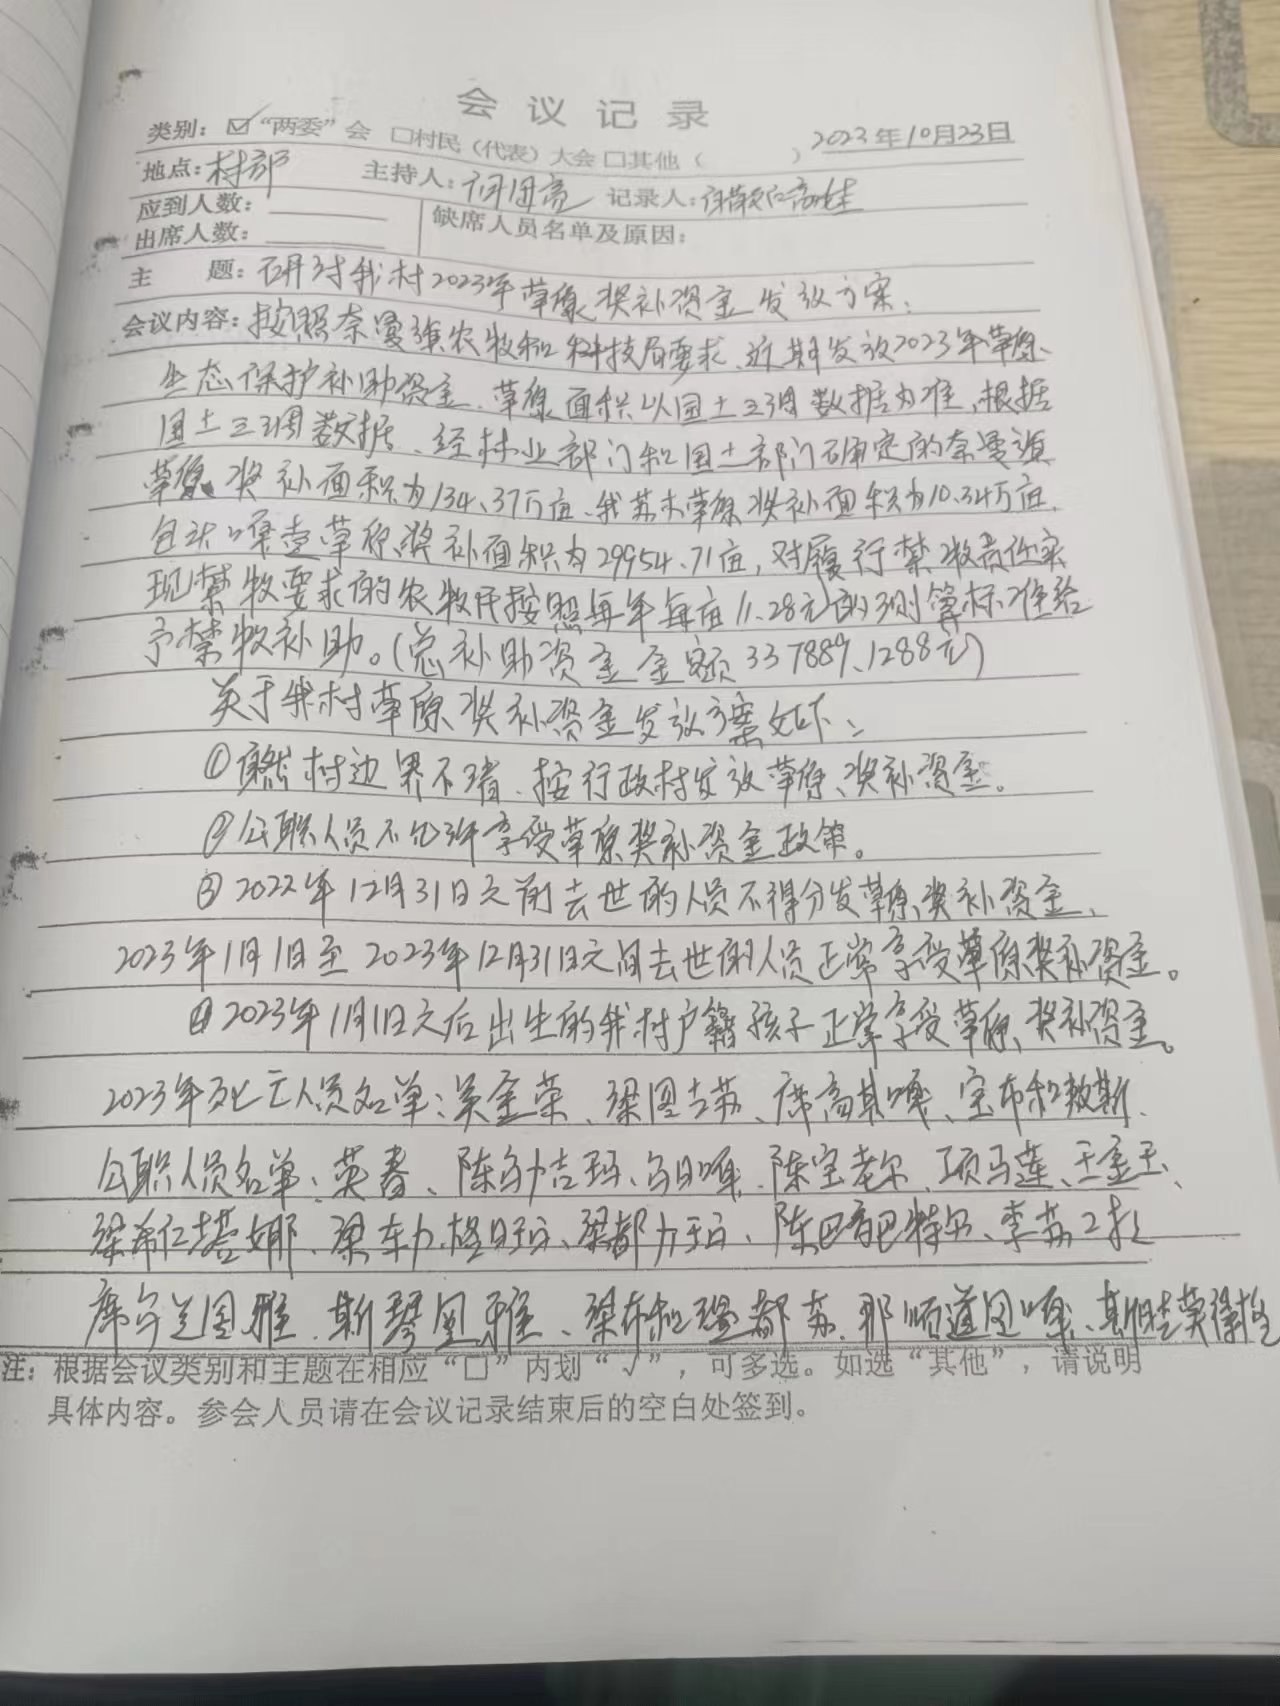 会议记录
类别：☑“两委”会 □村民（代表）大会 □其他（ ） 2023年10月23日
地点：村部 主持人： 记录人：
应到人数：
出席人数： 缺席人员名单及原因：
主 题：研讨我村2023年草原奖补资金发放方案.
会议内容：按照奈曼旗农牧和科技局要求、近期发放2023年草原
生态保护补助资金、草原面积以国土三调数据为准、根据
国土三调数据、经林业部门和国土部门确定的奈曼旗
草原奖补面积为134.37万亩、我苏木草原奖补面积为10.34万亩.
草原奖补面积为29954.71亩，对履行禁牧责任实
现禁牧要求的农牧民按照每年每亩11.28元的测算标准给
予禁牧补助。（总补助资金金额337889.1288元）
关于我村草原奖补资金发放方案如下：
①自然村边界不清、按行政村发放草原奖补资金。
②公职人员不允许享受草原奖补资金政策。
③2022年12月31日之前去世的人员不得分发草原奖补资金、
2023年1月1日至2023年12月31日之间去世的人员正常享受草原奖补资金。
④2023年1月1日之后出生的我村户籍孩子正常享受草原奖补资金。
2023年死亡人员名单：吴金荣、梁图吉苏、席高其嘎、宝布和敖斯
公职人员名单：英春、陈乌力吉玛、乌日嘎、陈宝老尔、项马莲、王金玉、
梁希仁塔娜、梁东力格日玛、梁都力玛、陈巴音巴特尔、
席乌兰图雅、斯琴图雅、梁布和、那顺道图嘎、
注：根据会议类别和主题在相应“□”内划“√”，可多选。如选“其他”，请说明
具体内容。参会人员请在会议记录结束后的空白处签到。